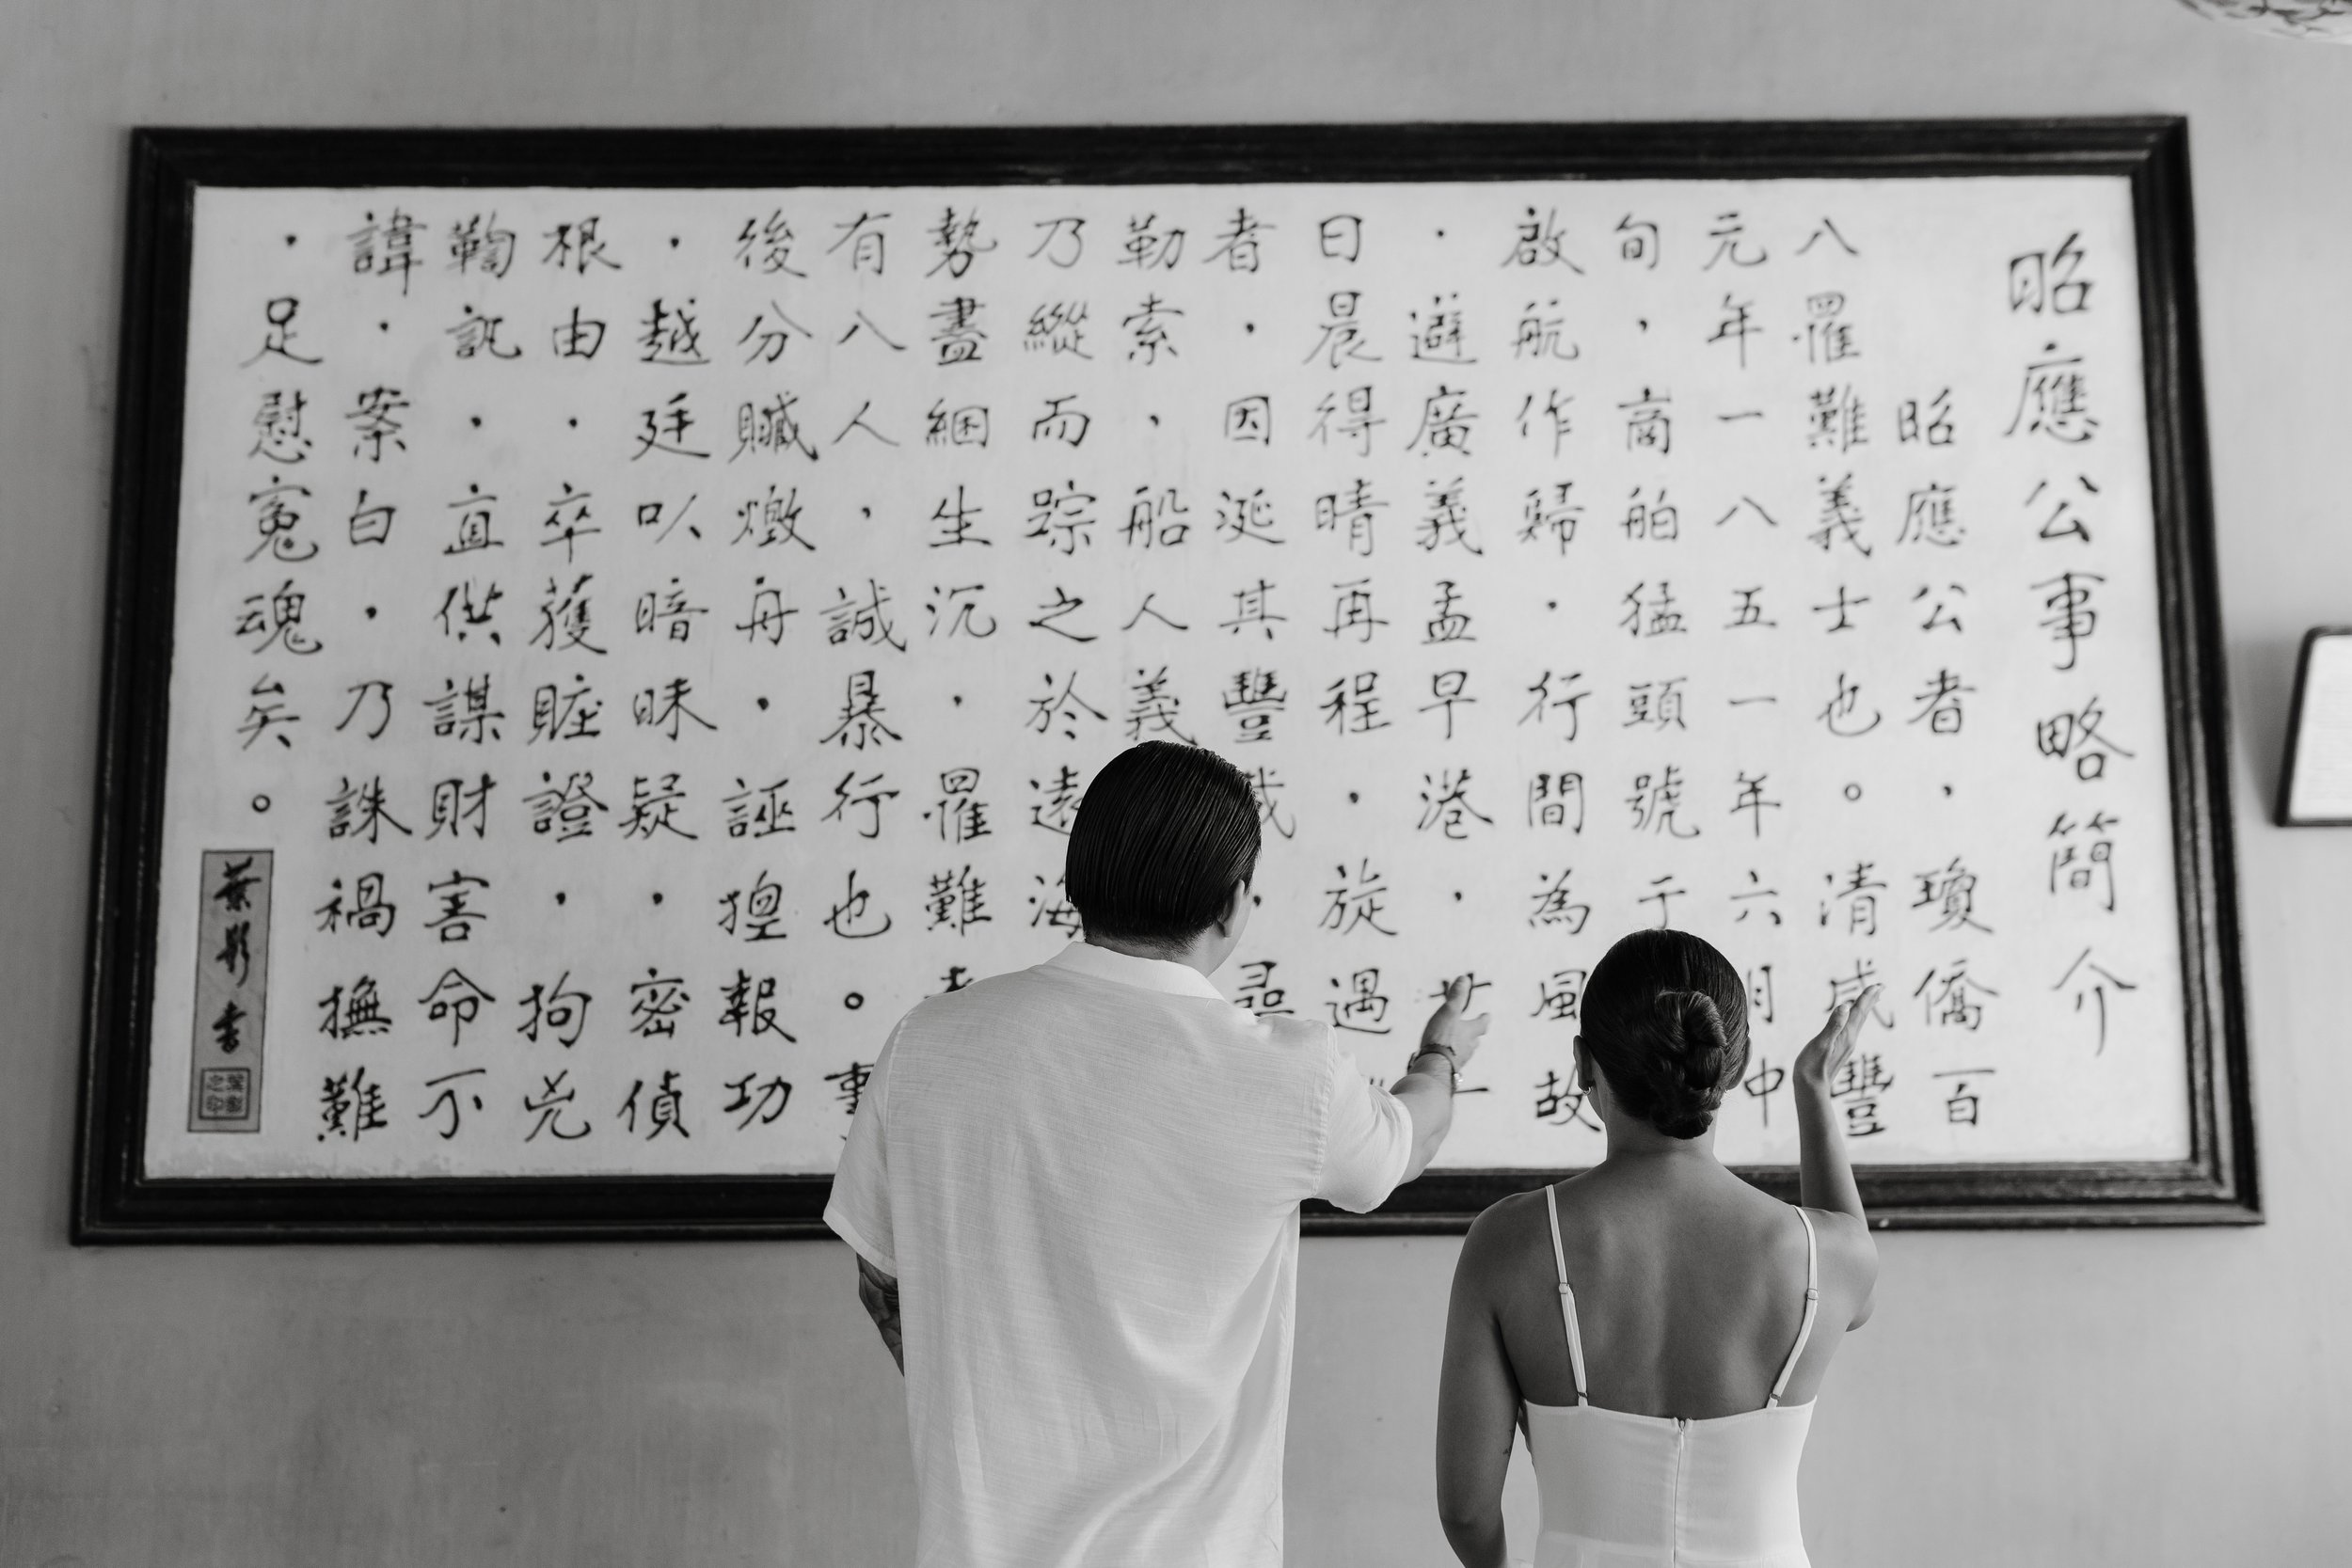 昭應公事略簡介
昭應公者，瓊僑一百
八罹難義士也。清咸豐
元年一八五一年六月中
旬，商舶猛頭號于
啟航作歸，行間為風故
，避廣義孟早港，廿一
日晨得晴再程，旋遇
者，因涎其豐
勒索，船人義
乃縱而踪之於遠海
勢盡綑生沉，罹難
有八人，誠暴行也。事
後分贓燉舟，誣揑報功
，越廷以暗昧疑，密偵
根由，卒獲賍證，拘兇
鞫訊，直供謀財害命不
諱，案白，乃誅禍撫難
，足慰寃魂矣。
葉彰書